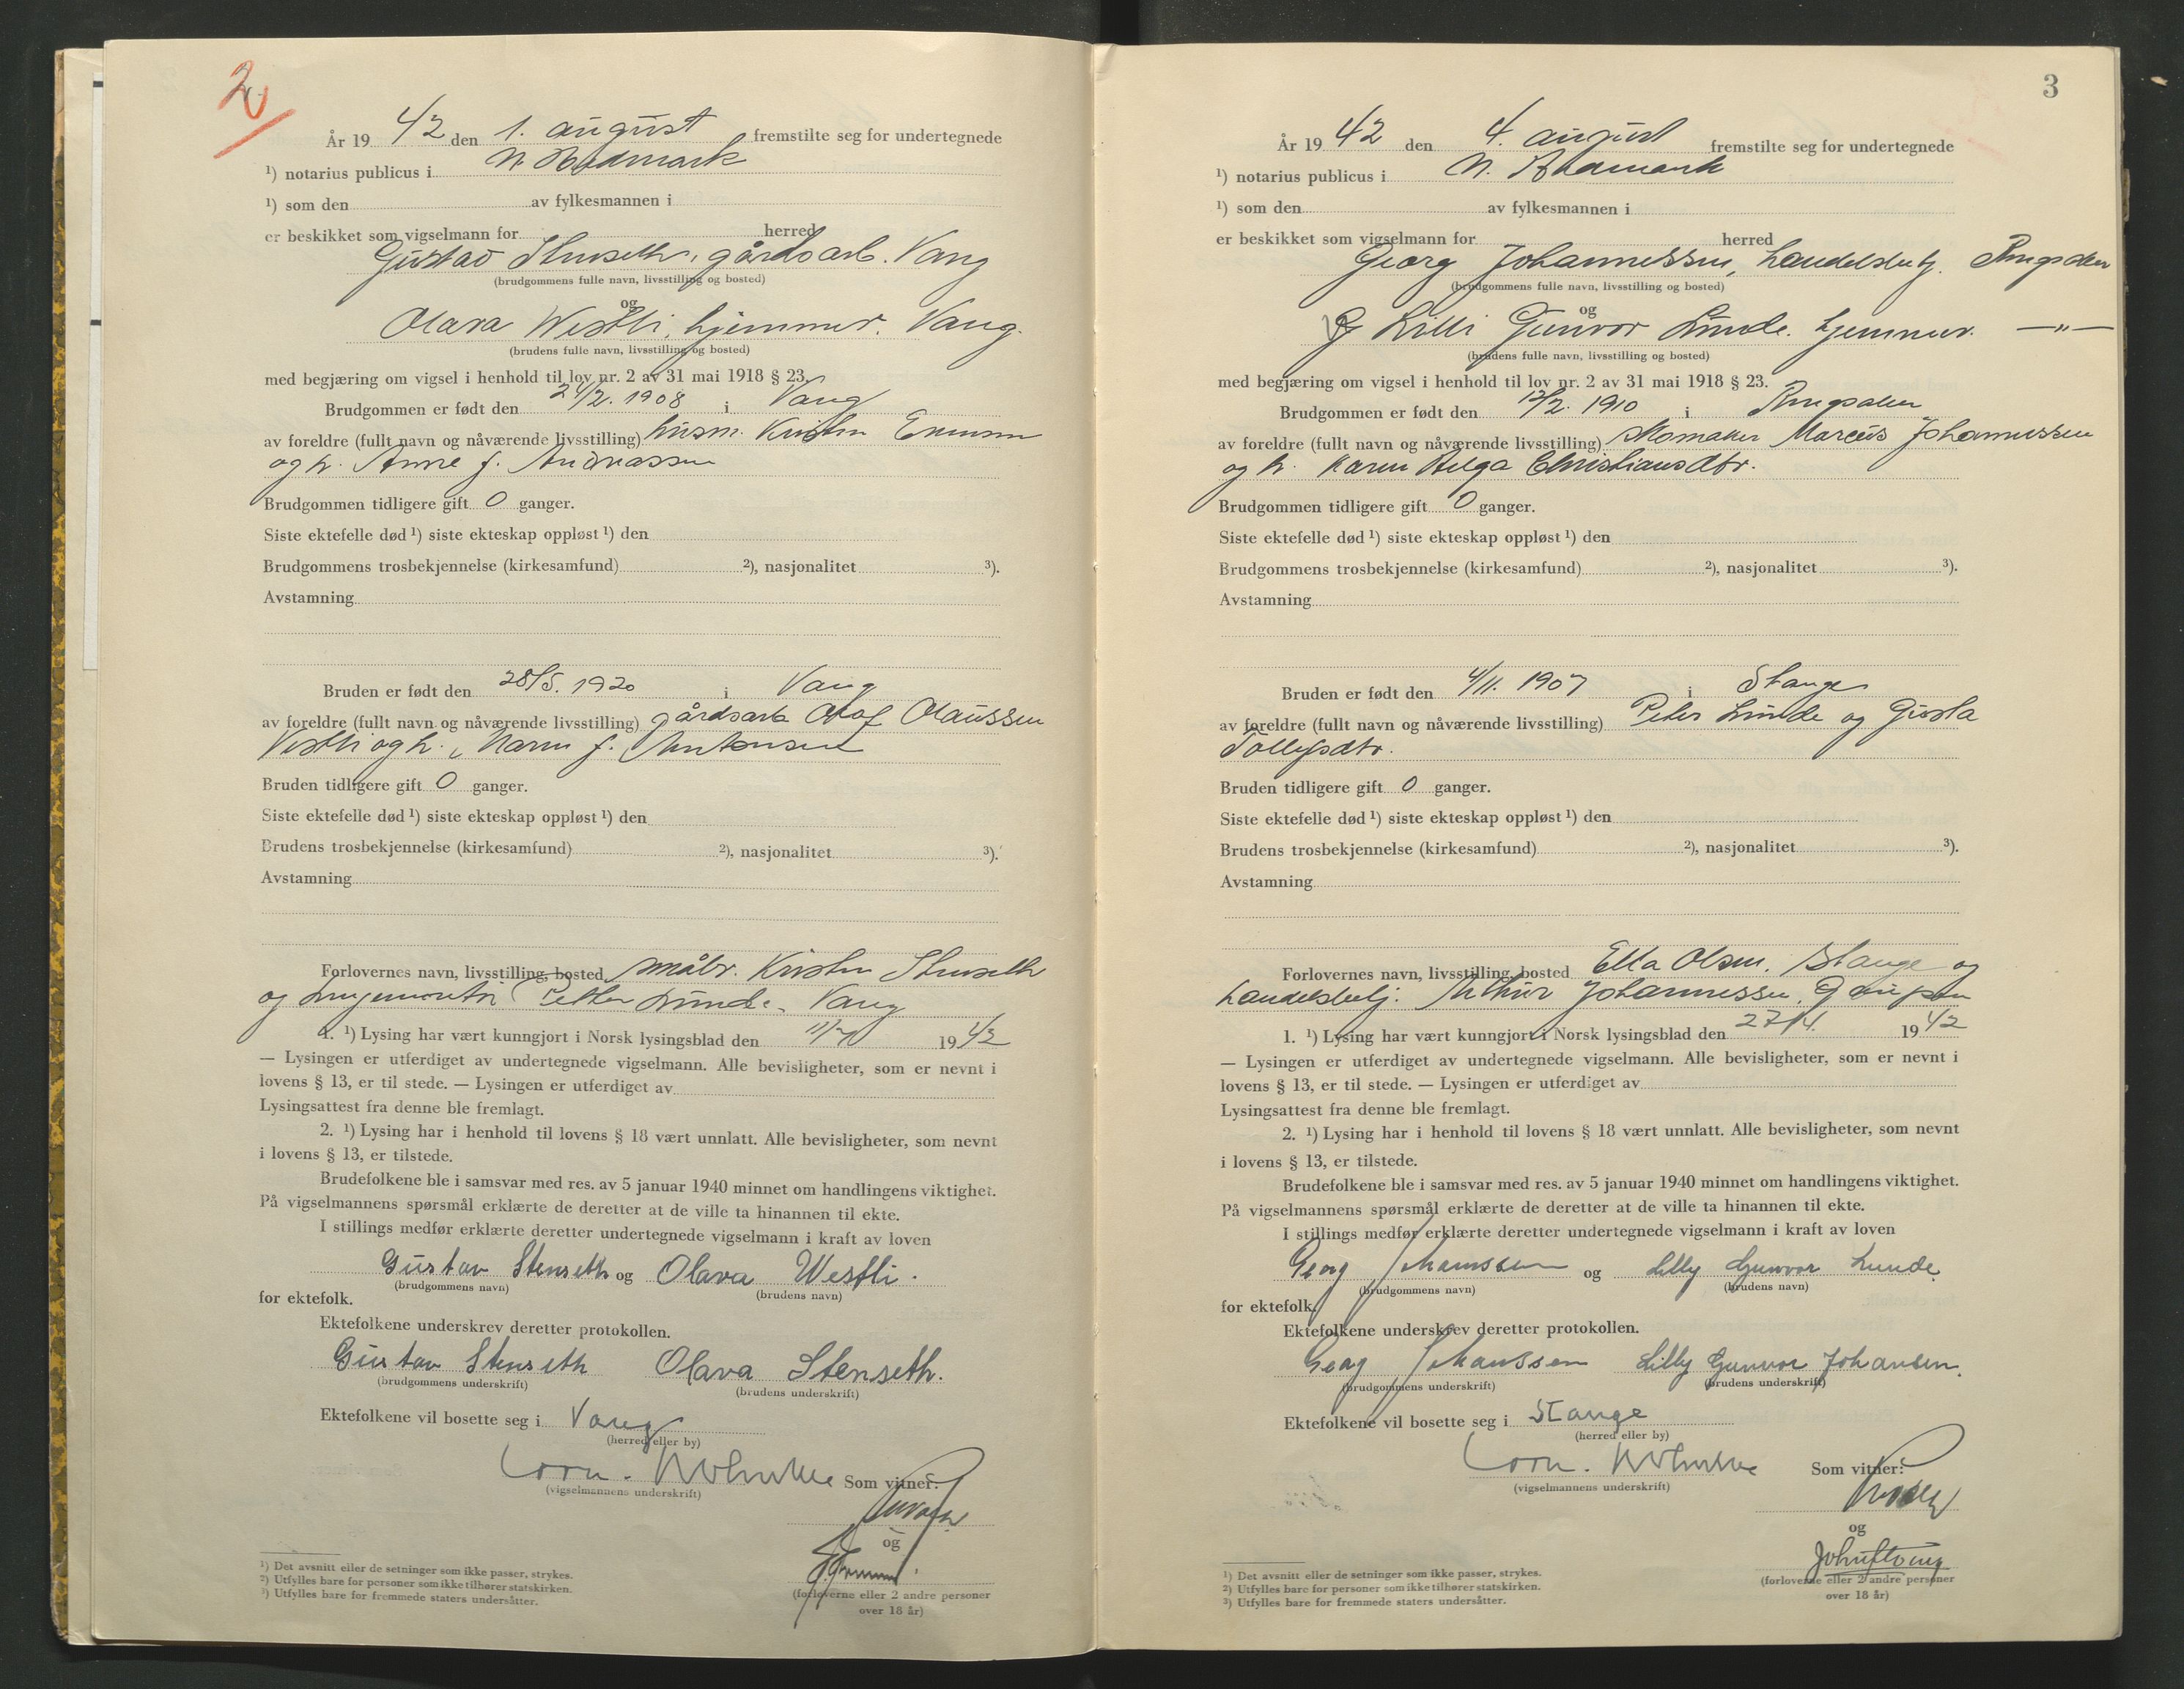 2
År 19 42 den 1. august fremstilte seg for undertegnede
¹) notarius publicus i N. Hedmark
¹) som den av fylkesmannen i
er beskikket som vigselmann for herred
Gustav Stenseth, gårdsarb. Vang
(brudgommens fulle navn, livsstilling og bosted)
og
Olava Westli, hjemmev. Vang.
(brudens fulle navn, livsstilling og bosted)
med begjæring om vigsel i henhold til lov nr. 2 av 31 mai 1918 § 23.
Brudgommen er født den 24/2. 1908 i Vang
av foreldre (fullt navn og nåværende livsstilling) husm. Kristen
og h. Anne f. Andreassen
Brudgommen tidligere gift 0 ganger.
Siste ektefelle død ¹) siste ekteskap oppløst ¹) den
Brudgommens trosbekjennelse (kirkesamfund) ²), nasjonalitet ³).
Avstamning
Bruden er født den 28/5. 1920 i Vang
av foreldre (fullt navn og nåværende livsstilling) gårdsarb Olaf Olaussen
Vestli og h. Maren f. Antonsen
Bruden tidligere gift 0 ganger.
Siste ektefelle død ¹) siste ekteskap oppløst ¹) den
Brudens trosbekjennelse (kirkesamfund) ²), nasjonalitet ³).
Avstamning
Forlovernes navn, livsstilling, bosted småbr. Kristen Stenseth
og Petter Lunde, Vang
1. ¹) Lysing har vært kunngjort i Norsk lysingsblad den 11/7 19 42
— Lysingen er utferdiget av undertegnede vigselmann. Alle bevisligheter, som er nevnt i
lovens § 13, er til stede. — Lysingen er utferdiget av
Lysingsattest fra denne ble fremlagt.
2. ¹) Lysing har i henhold til lovens § 18 vært unnlatt. Alle bevisligheter, som nevnt
i lovens § 13, er tilstede.
Brudefolkene ble i samsvar med res. av 5 januar 1940 minnet om handlingens viktighet.
På vigselmannens spørsmål erklærte de deretter at de ville ta hinannen til ekte.
I stillings medfør erklærte deretter undertegnede vigselmann i kraft av loven
Gustav Stenseth og Olava Westli.
(brudgommens navn) (brudens navn)
for ektefolk.
Ektefolkene underskrev deretter protokollen.
Gustav Stenseth Olava Stenseth.
(brudgommens underskrift) (brudens underskrift)
Ektefolkene vil bosette seg i Vang
(herred eller by)
Som vitner:
(vigselmannens underskrift)
og
(forloverne eller 2 andre personer
over 18 år)
¹) Det avsnitt eller de setninger som ikke passer, strykes.
²) Utfylles bare for personer som ikke tilhører statskirken.
³) Utfylles bare for fremmede staters undersåtter.
3
År 19 42 den 4. august fremstilte seg for undertegnede
¹) notarius publicus i N. Hedmark
¹) som den av fylkesmannen i
er beskikket som vigselmann for herred
Georg Johannessen, handelsbetj. Ringsaker
(brudgommens fulle navn, livsstilling og bosted)
og
Lilli Gunvor Lunde. hjemmev. —"—
(brudens fulle navn, livsstilling og bosted)
med begjæring om vigsel i henhold til lov nr. 2 av 31 mai 1918 § 23.
Brudgommen er født den 12/2. 1910 i Ringsaker
av foreldre (fullt navn og nåværende livsstilling) Skomaker Marcus Johannessen
og h. Karen Helga Christiansdtr.
Brudgommen tidligere gift 0 ganger.
Siste ektefelle død ¹) siste ekteskap oppløst ¹) den
Brudgommens trosbekjennelse (kirkesamfund) ²), nasjonalitet ³).
Avstamning
Bruden er født den 4/11. 1907 i Stange
av foreldre (fullt navn og nåværende livsstilling) Peter Lunde og
Tollefsdtr.
Bruden tidligere gift 0 ganger.
Siste ektefelle død ¹) siste ekteskap oppløst ¹) den
Brudens trosbekjennelse (kirkesamfund) ²), nasjonalitet ³).
Avstamning
Forlovernes navn, livsstilling, bosted Ella Olsen. Stange og
handelsbetj. Arthur Johannessen, Gaupen
1. ¹) Lysing har vært kunngjort i Norsk lysingsblad den 27/4. 19 42
— Lysingen er utferdiget av undertegnede vigselmann. Alle bevisligheter, som er nevnt i
lovens § 13, er til stede. — Lysingen er utferdiget av
Lysingsattest fra denne ble fremlagt.
2. ¹) Lysing har i henhold til lovens § 18 vært unnlatt. Alle bevisligheter, som nevnt
i lovens § 13, er tilstede.
Brudefolkene ble i samsvar med res. av 5 januar 1940 minnet om handlingens viktighet.
På vigselmannens spørsmål erklærte de deretter at de ville ta hinannen til ekte.
I stillings medfør erklærte deretter undertegnede vigselmann i kraft av loven
Georg Johanssen og Lilly Gunvor Lunde
(brudgommens navn) (brudens navn)
for ektefolk.
Ektefolkene underskrev deretter protokollen.
Georg Johanssen Lilly Gunvor Johansen.
(brudgommens underskrift) (brudens underskrift)
Ektefolkene vil bosette seg i Stange
(herred eller by)
Som vitner:
(vigselmannens underskrift)
og
(forloverne eller 2 andre personer
over 18 år)
¹) Det avsnitt eller de setninger som ikke passer, strykes.
²) Utfylles bare for personer som ikke tilhører statskirken.
³) Utfylles bare for fremmede staters undersåtter.